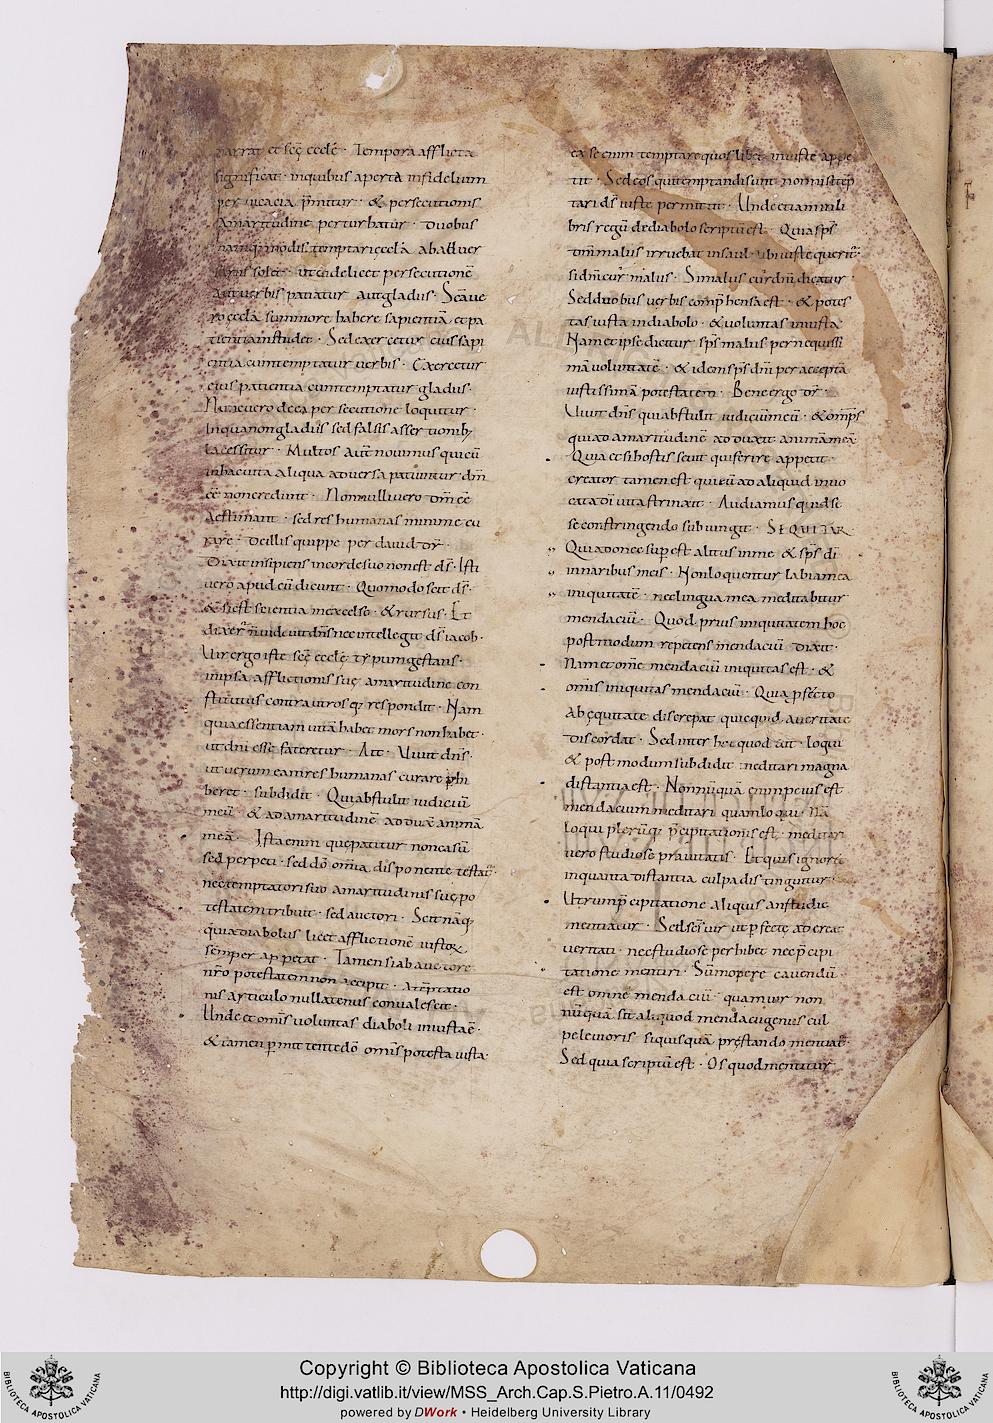 narrat et scę eccłę · Tempora afflicta
significat · inquibus aperta infidelium
per uicacia p̄mitur · & persecutionis
Amaritudine perturbatur · Duobus
namq; modis temptari eccła ab aduer
sariis solet · ut uidelicet persecutionē
aut uerbis patiatur aut gladiis · Scā ue
ro eccła summopere habere sapientiā et pa
tientia studet · Sed exercetur eius sapi
entia cum temptatur uerbis · Exercetur
eius patientia cum temptatur gladiis ·
Nunc uero de ea persecutione loquitur ·
Inqua non gladiis sed falsis assertionib;
lacessitur · Multos autē nouimus qui cū
inhac uita aliqua aduersa patiuntur dm̄
eē non credunt · Nonnulli uero dm̄ eē
Aestimant · sed res humanas minime cu
rare · De illis quippe per dauid dr̄ ·
Dixit insipiens incorde suo non est ds̄ · Isti
uero apud eū dicunt · Quomodo scit ds̄ ·
& si est scientia inexcelso · & rursus · Et
dixer̄ n̄ uidebit dn̄s nec intellegit ds̄ iacob ·
Uir ergo iste scę eccłę typum gestans ·
inipsa afflictionis suę amaritudine con
stitutus contra utrosq; respondit · Nam
quia essentiam uitā habet mors non habet ·
ut dn̄i esse fateretur · Ait · Uiuit dn̄s ·
ut uerum eam res humanas curare phi
beret · subdidit · Qui abstulit iudiciū
meū · & ad amaritudinē adduxit animā
meā · Ista enim quę patitur non casū
sed perpeti · sed dō omīa disponente testat̄ ·
nec temptatori suo amaritudinis suę po
testatem tribuit · sed auctori · Scit nāq;
quia diabolus licet afflictionē iustoꝝ
semper appetat · Tamen si ab auctore
nr̄o potestatem non accipit · ad temptatio
nis articulo nullatenus conualescit ·
Unde et om̄is uoluntas diaboli iniusta ē ·
& tamen p̄mittente dō om̄is potesta iusta ·
ex se enim temptare quoslibet iniuste appe
tit · Sed eos qui temptandi sunt non nisi temp
tari ds̄ iuste permittit · Unde etiam in li
bris regū de diabolo scriptū est · Quia sps̄
dn̄i malus irruebat in saul · ubi iuste querit̄ ·
si dn̄i cur malus · Si malus cur dn̄i dicatur ·
Sed duobus uerbis comp̄hensa est · & potes
tas iusta in diabolo · & uoluntas iniusta
Nam et ipse dicitur sps̄ malus per nequissi
mā uoluntatē · & idem sps̄ dn̄i per acceptā
iustissimā potestatem · Bene ergo dr̄ ·
Uiuit dn̄s qui abstulit iudiciū meū · & omp̄s
qui ad amaritudinē adduxit animā meā
Quia et si hostis seuit qui ferire appetit ·
creator tamen est qui eū ad aliquid inuo
cata dī uita strinxit · Audiamus quid se
se constringendo subiungit · SEQUITUR
Quia donec sup̄est alitus in me & sps̄ di
in naribus meis · Non loquentur labia mea
iniquitatē · nec lingua mea meditabitur
mendaciū · Quod prius iniquitatem hoc
postmodum repetens mendaciū dixit ·
Nam et omē mendaciū iniquitas est · &
om̄is iniquitas mendaciū · Quia p̄fecto
Ab ęquitate discrepat quicquid a ueritate
discordat · Sed inter hoc quod ait loqui
& post modum subdidit meditari magna
distantia est · Nonnūquā enim peius est
mendacium meditari quam loqui · Nā
Loqui plerūq; p̄cipitationis est · meditari
uero studiose prauitatis · Et quis ignoret
in quanta distantia culpa distinguitur ·
Utrum p̄cipitatione aliquis an studio
mentiatur · Sed scs̄ uir ut p̄fectę adhereat
ueritati · nec studiose perhibet nec p̄cipi
tatione mentiri · Summopere cauendū
est omne mendaciū · quamuis non
nūquā sit aliquod mendacii genus cul
pe leuioris si quisquā pręstando mentiat̄ ·
Sed quia scriptū est · Os quod mentitur
Copyright © Biblioteca Apostolica Vaticana
http://digi.vatlib.it/view/MSS_Arch.Cap.S.Pietro.A.11/0492
powered by DWork • Heidelberg University Library
BIBLIOTECA APOSTOLICA VATICANA
BIBLIOTECA APOSTOLICA VATICANA